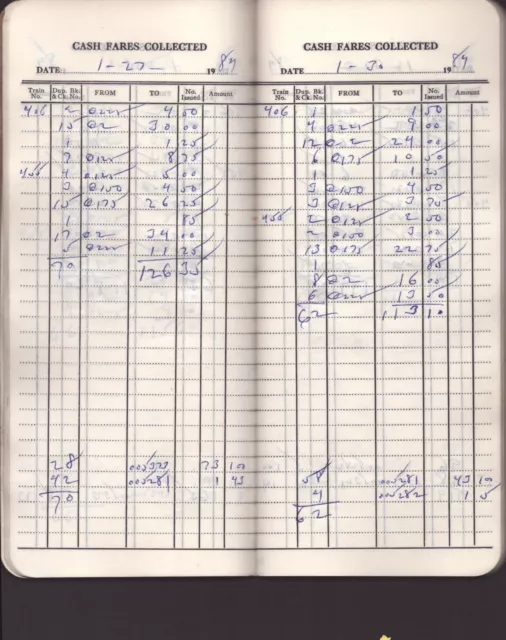 CASH FARES COLLECTED
DATE 1-27- 1984
Train No. Dup. Bk. & Ck. No. FROM TO No. Issued Amount
406 @225 4 50
15 @2 30 00
1 1 25
7 @125 8 75
455 4 @125 5 00
3 @150 4 50
15 @175 26 25
1 85
17 @2 34 00
5 @225 11 25
70 126 35
28 73 100
42 005281 1 43
70
CASH FARES COLLECTED
DATE 1-30 1984
Train No. Dup. Bk. & Ck. No. FROM TO No. Issued Amount
406 1 1 50
4 @225 9 00
12 @2 24 00
6 @175 10 50
1 1 25
3 @150 4 50
3 @125 3 75
455 2 @125 2 50
2 @150 3 00
13 @175 22 75
1 85
8 @2 16 00
6 @225 13 50
62 113 10
58 005281 43 100
4 005282 1 5
62